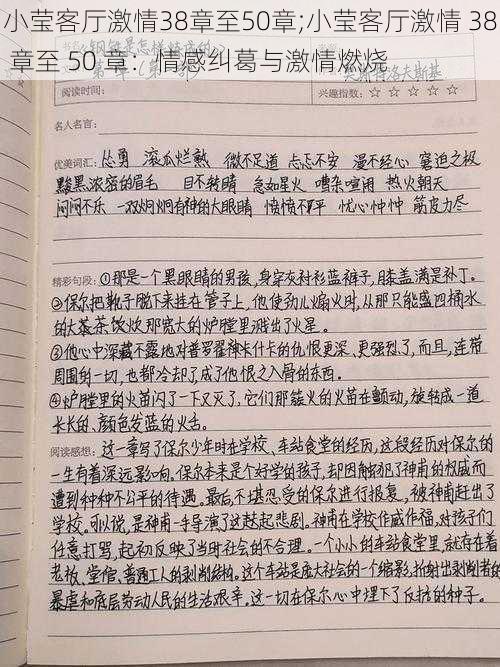 小莹客厅激情38章至50章;小莹客厅激情 38
章至 50 章：情感纠葛与激情燃烧
阅读时间：
兴趣指数：☆ ☆ ☆ ☆ ☆
名人名言：
优美词汇：怂勇 滚瓜烂熟 微不足道 忐忑不安 漫不经心 窘迫之极
黝黑浓密的眉毛 目不转睛 急如星火 嘈杂喧闹 热火朝天
闷闷不乐 一双炯炯有神的大眼睛 愤愤不平 忧心忡忡 筋皮力尽
精彩句段：①那是一个黑眼睛的男孩，身穿灰衬衫蓝裤子，膝盖满是补丁。
②保尔把靴子脱下来挂在管子上，他使劲儿煽火时，从那只能盛四桶水
的大茶茶饮炊那宽大的炉膛里溅出了火星。
③他心中深藏不露地对普罗霍神卡什卡的仇恨更深，更强烈了，而且，连带
周围的一切，也都冷却了，成了他恨之入骨的东西。
④炉膛里的火苗闪了一下又灭了，它们那簇火的火苗在颤动，旋转成一道
长长的、颜色发蓝的火舌。
阅读感想：这一章写了保尔少年时在学校、车站食堂的经历，这段经历对保尔的
一生有着深远影响。保尔本来是个好学的孩子，却因触犯了神甫的权威而
遭到种种不公平的待遇。最后不堪忍受的保尔进行报复，被神甫赶出了
学校。可以说，是神甫一手导演了这起悲剧。神甫在学校作威作福，对孩子们
任意打骂，起初反映了当时社会的不合理。一个小小的车站食堂里，就存在着
老板、堂倌、普通工人的剥削结构。这个车站是庞大社会的一个缩影，折射出剥削者的
暴虐和底层劳动人民的生活艰辛。这一切在保尔心中埋下了反抗的种子。